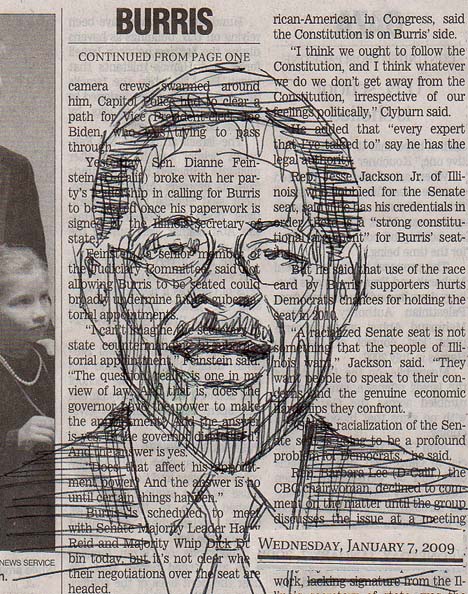 BURRIS
CONTINUED FROM PAGE ONE
camera crews swarmed around
him, Capitol Police had to clear a
path for Vice
Biden, who was trying to pass
through.
Yesterday, Sen. Dianne Fein-
stein (D-Calif.) broke with her par-
ty's leadership in calling for Burris
to be seated once his paperwork is
signed by the Illinois secretary of
state.
Feinstein, a senior member of
the Judiciary Committee, said not
allowing Burris to be seated could
broadly undermine future guberna-
torial appointments.
"I can't imagine the secretary of
state countermanding a guberna-
torial appointment," Feinstein said.
"The question really is one in my
view of law. And that is, does the
governor have the power to make
the appointment? And the answer
is yes. Is the governor discredited?
And the answer is yes.
"Does that affect his appoint-
ment power? And the answer is no
until certain things happen."
Burris is scheduled to meet
with Senate Majority Leader Harry
Reid and Majority Whip Dick Dur-
bin today, but it's not clear whe
their negotiations over the seat are
headed.
rican-American in Congress, said
the Constitution is on Burris' side.
"I think we ought to follow the
Constitution, and I think whatever
we do we don't get away from the
Constitution, irrespective of our
feelings politically," Clyburn said.
He added that "every expert
that I've talked to" say he has the
legal authority.
Rep. Jesse Jackson Jr. of Illi-
nois, who vied for the Senate
seat, has his credentials in
order, a "strong constitu-
tional argument" for Burris' seat-
ing.
But he said that use of the race
card by Burris' supporters hurts
Democrats' chances for holding the
seat in 2010.
"A racialized Senate seat is not
something that the people of Illi-
nois want," Jackson said. "They
want people to speak to their con-
cerns and the genuine economic
hardships they confront.
racialization of the Sen-
ate seat is going to be a profound
problem for Democrats," he said.
Rep. Barbara Lee (D-Calif.), the
CBC chairwoman, declined to com-
ment on the matter until the group
discusses the issue at a meeting
WEDNESDAY, JANUARY 7, 2009
work, lacking signature from the Il-
NEWS SERVICE